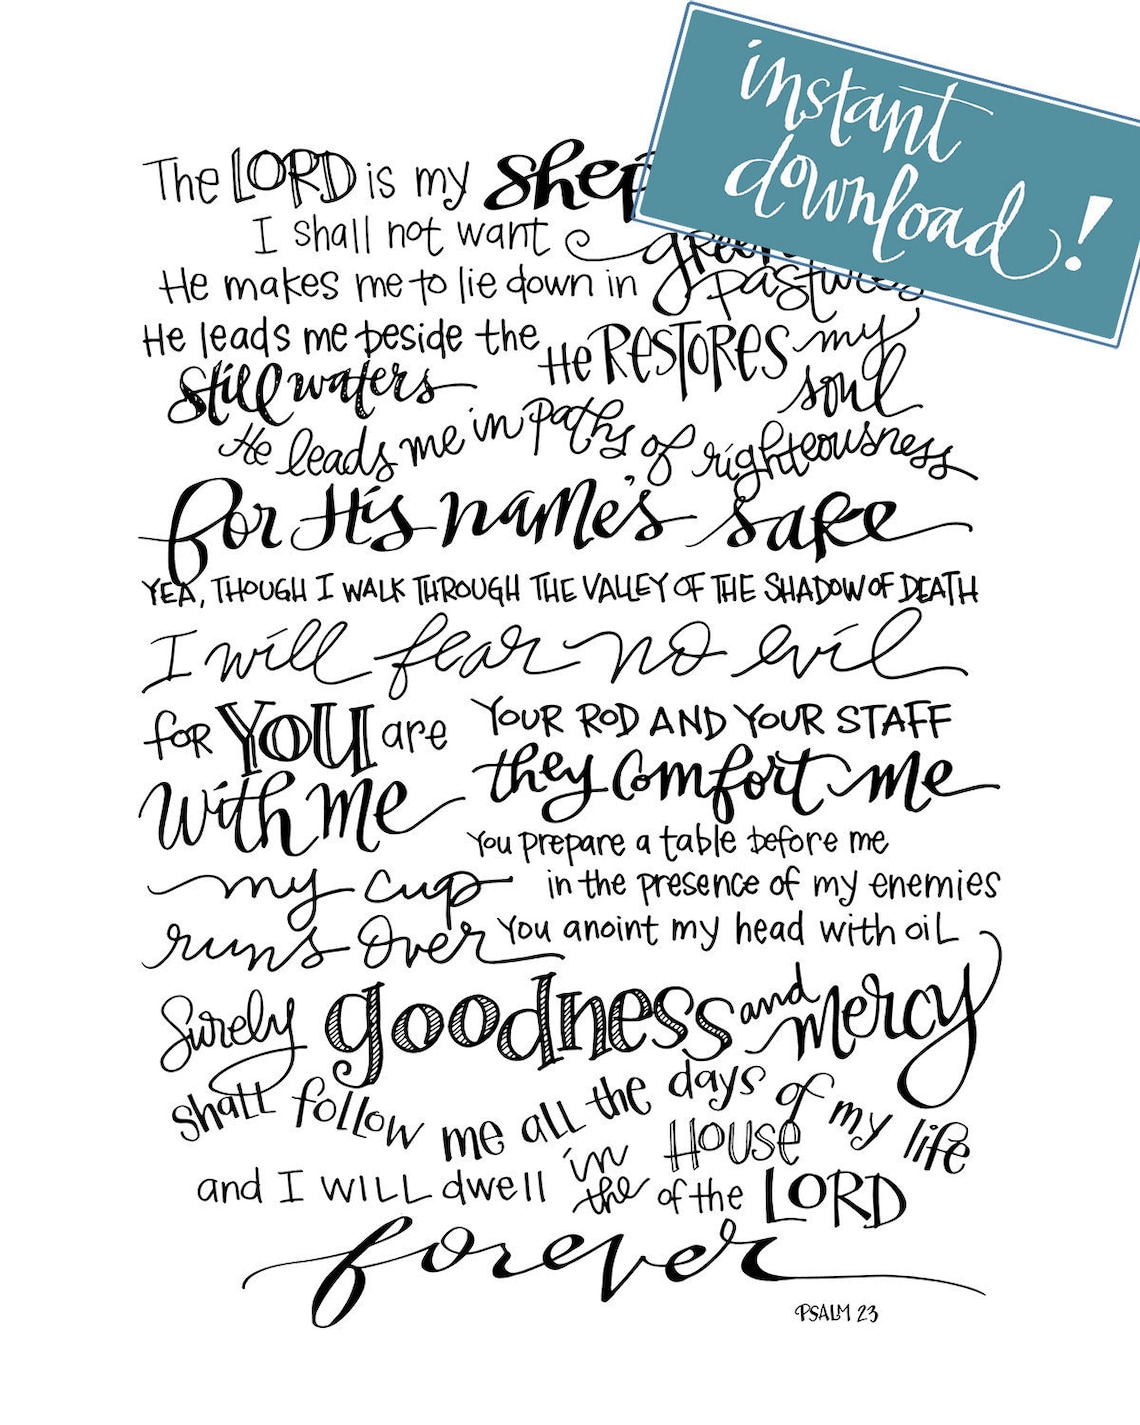 instant
download!
The LORD is my
I shall not want
He makes me to lie down in green pastures
He leads me beside the
still waters
He RESTORES my
soul
He leads me in paths of righteousness
for His name's sake
YEA, THOUGH I WALK THROUGH THE VALLEY OF THE SHADOW OF DEATH
I will fear no evil
for YOU are
with me
YOUR ROD AND YOUR STAFF
they comfort me
You prepare a table before me
in the presence of my enemies
You anoint my head with oil
my cup
runs over
Surely goodness and mercy
shall follow me all the days of my life
and I WILL dwell in the HOUSE of the LORD
forever
PSALM 23